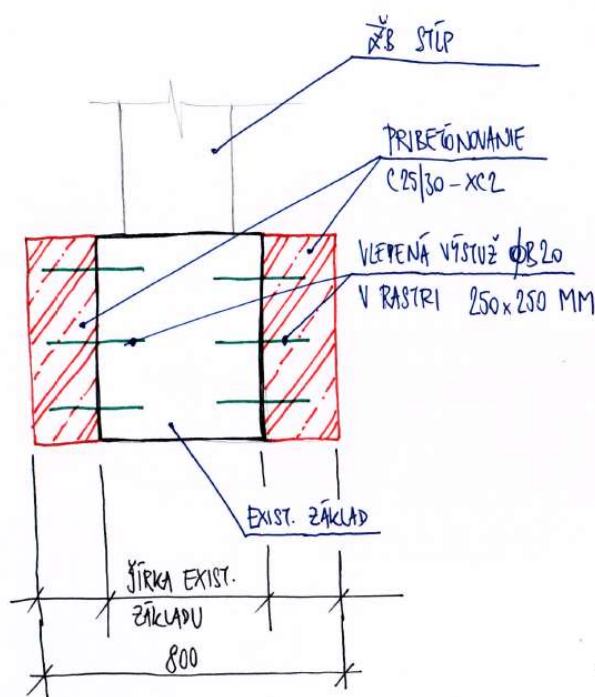 ŽB STĹP
PRIBETÓNOVANIE
C25/30-XC2
VLEPENÁ VÝSTUŽ ϕB20
V RASTRI 250x250 MM
EXIST. ZÁKLAD
ŠÍRKA EXIST.
ZÁKLADU
800